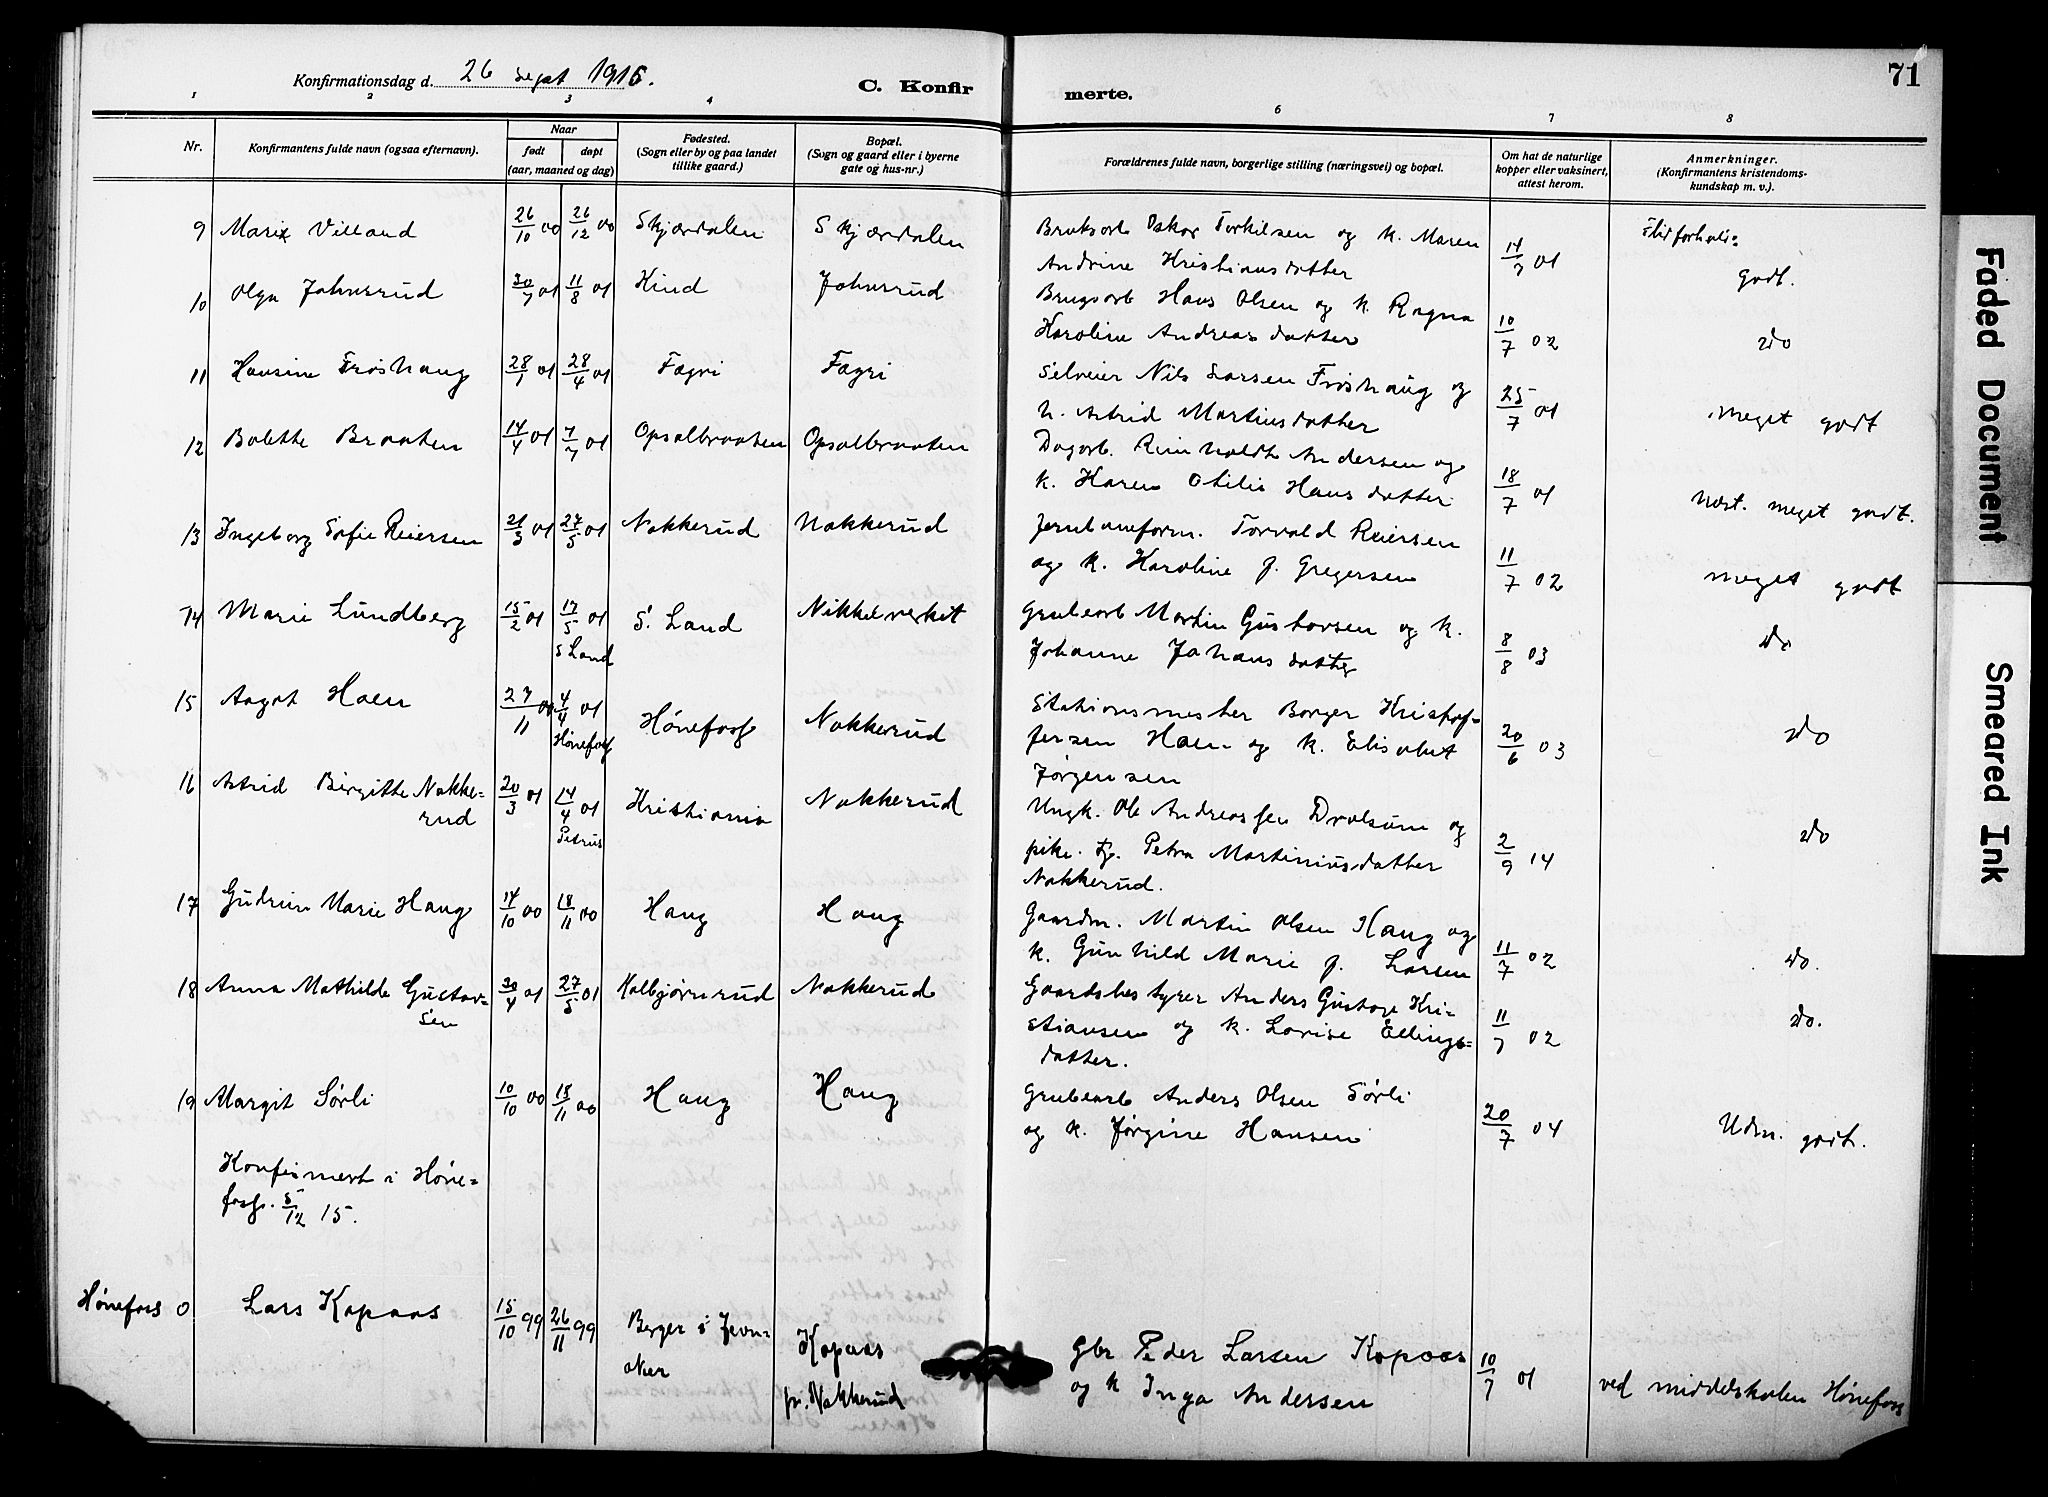 Konfirmationsdag d. 26 sept 1915.
C. Konfir
merte.
71
1 2 3 4 6 7 8
Nr.
Konfirmantens fulde navn (ogsaa efternavn).
Naar
født
døpt
(aar, maaned og dag)
Fødested.
(Sogn eller by og paa landet
tillike gaard.)
Bopæl.
(Sogn og gaard eller i byerne
gate og hus-nr.)
Forældrenes fulde navn, borgerlige stilling (næringsvei) og bopæl.
Om hat de naturlige
kopper eller vaksinert,
attest herom.
Anmerkninger.
(Konfirmantens kristendoms-
kundskap m. v.).
9 Marie Villand 26/10 00 26/12 00 Skjærdalen Skjærdalen Bruksarb Oskar Torkilsen og k. Maren
Andrine Kristiansdatter 14/7 01 godt.
10 Olga Johnsrud 30/7 01 11/8 01 Kind Johnsrud Brugsarb Hans Olsen og k. Ragna
Karoline Andreasdatter 10/7 02 do
11 Hansine Frøshaug 28/1 01 28/4 01 Fagri Fagri Selveier Nils Larsen Frøshaug og
h. Astrid Martinsdatter 25/7 01 meget godt
12 Bolette Braaten 14/4 01 7/7 01 Opsalbraaten Opsalbraaten Dagarb. Reinholdt Andersen og
k. Karen Otilie Hansdatter 18/7 01 næst. meget godt.
13 Ingeborg Sofie Reiersen 21/3 01 27/5 01 Nakkerud Nakkerud Jernbaneform. Torvald Reiersen
og k. Karoline f. Gregersen 11/7 02 meget godt
14 Marie Lundberg 15/2 01 17/5 01 S. Land Nikkelverket Grubearb Martin Gustavsen og k.
S Land Johanne Johansdatter 8/8 03 do
15 Aagot Haen 23/11 00 4/4 01 Hønefoss Nakkerud Stationsmester Borger Kristof=
Hønefoss fersen Haen og k. Elisabet 20/6 03 do
Jørgensen
16 Astrid Birgitte Nakke= 20/3 01 14/4 01 Kristiania Nakkerud Ungk. Ole Andreassen Dralsum og
rud Petrus pike. Petra Martiniusdatter 2/9 14 do
Nakkerud.
17 Gudrun Marie Haug 14/10 00 18/11 00 Haug Haug Gaardm. Martin Olsen Haug og
k. Gunhild Marie f. Larsen 11/7 02 do.
18 Anna Mathilde Gustav= 30/4 01 27/5 01 Halbjørnrud Nakkerud Gaardsbestyrer Anders Gustav Kri=
sen stiansen og k. Lovise Ellings= 11/7 02 do.
datter.
19 Margit Sørli 10/10 00 18/11 00 Haug Haug Grubearb Anders Olsen Sørli
og k. Jørgine Hansen 20/7 04 Udm. godt.
Konfirmert i Høne=
foss. 5/12 15.
Hønefoss 0 Lars Kopaas 15/10 99 26/11 99 Berger i Jevn-
aker Kopaas
pr. Nakkerud Gbr Peder Larsen Kopaas
og k Inga Andersen 10/7 01 ved middelskolen Hønefoss
Faded Document
Smeared Ink